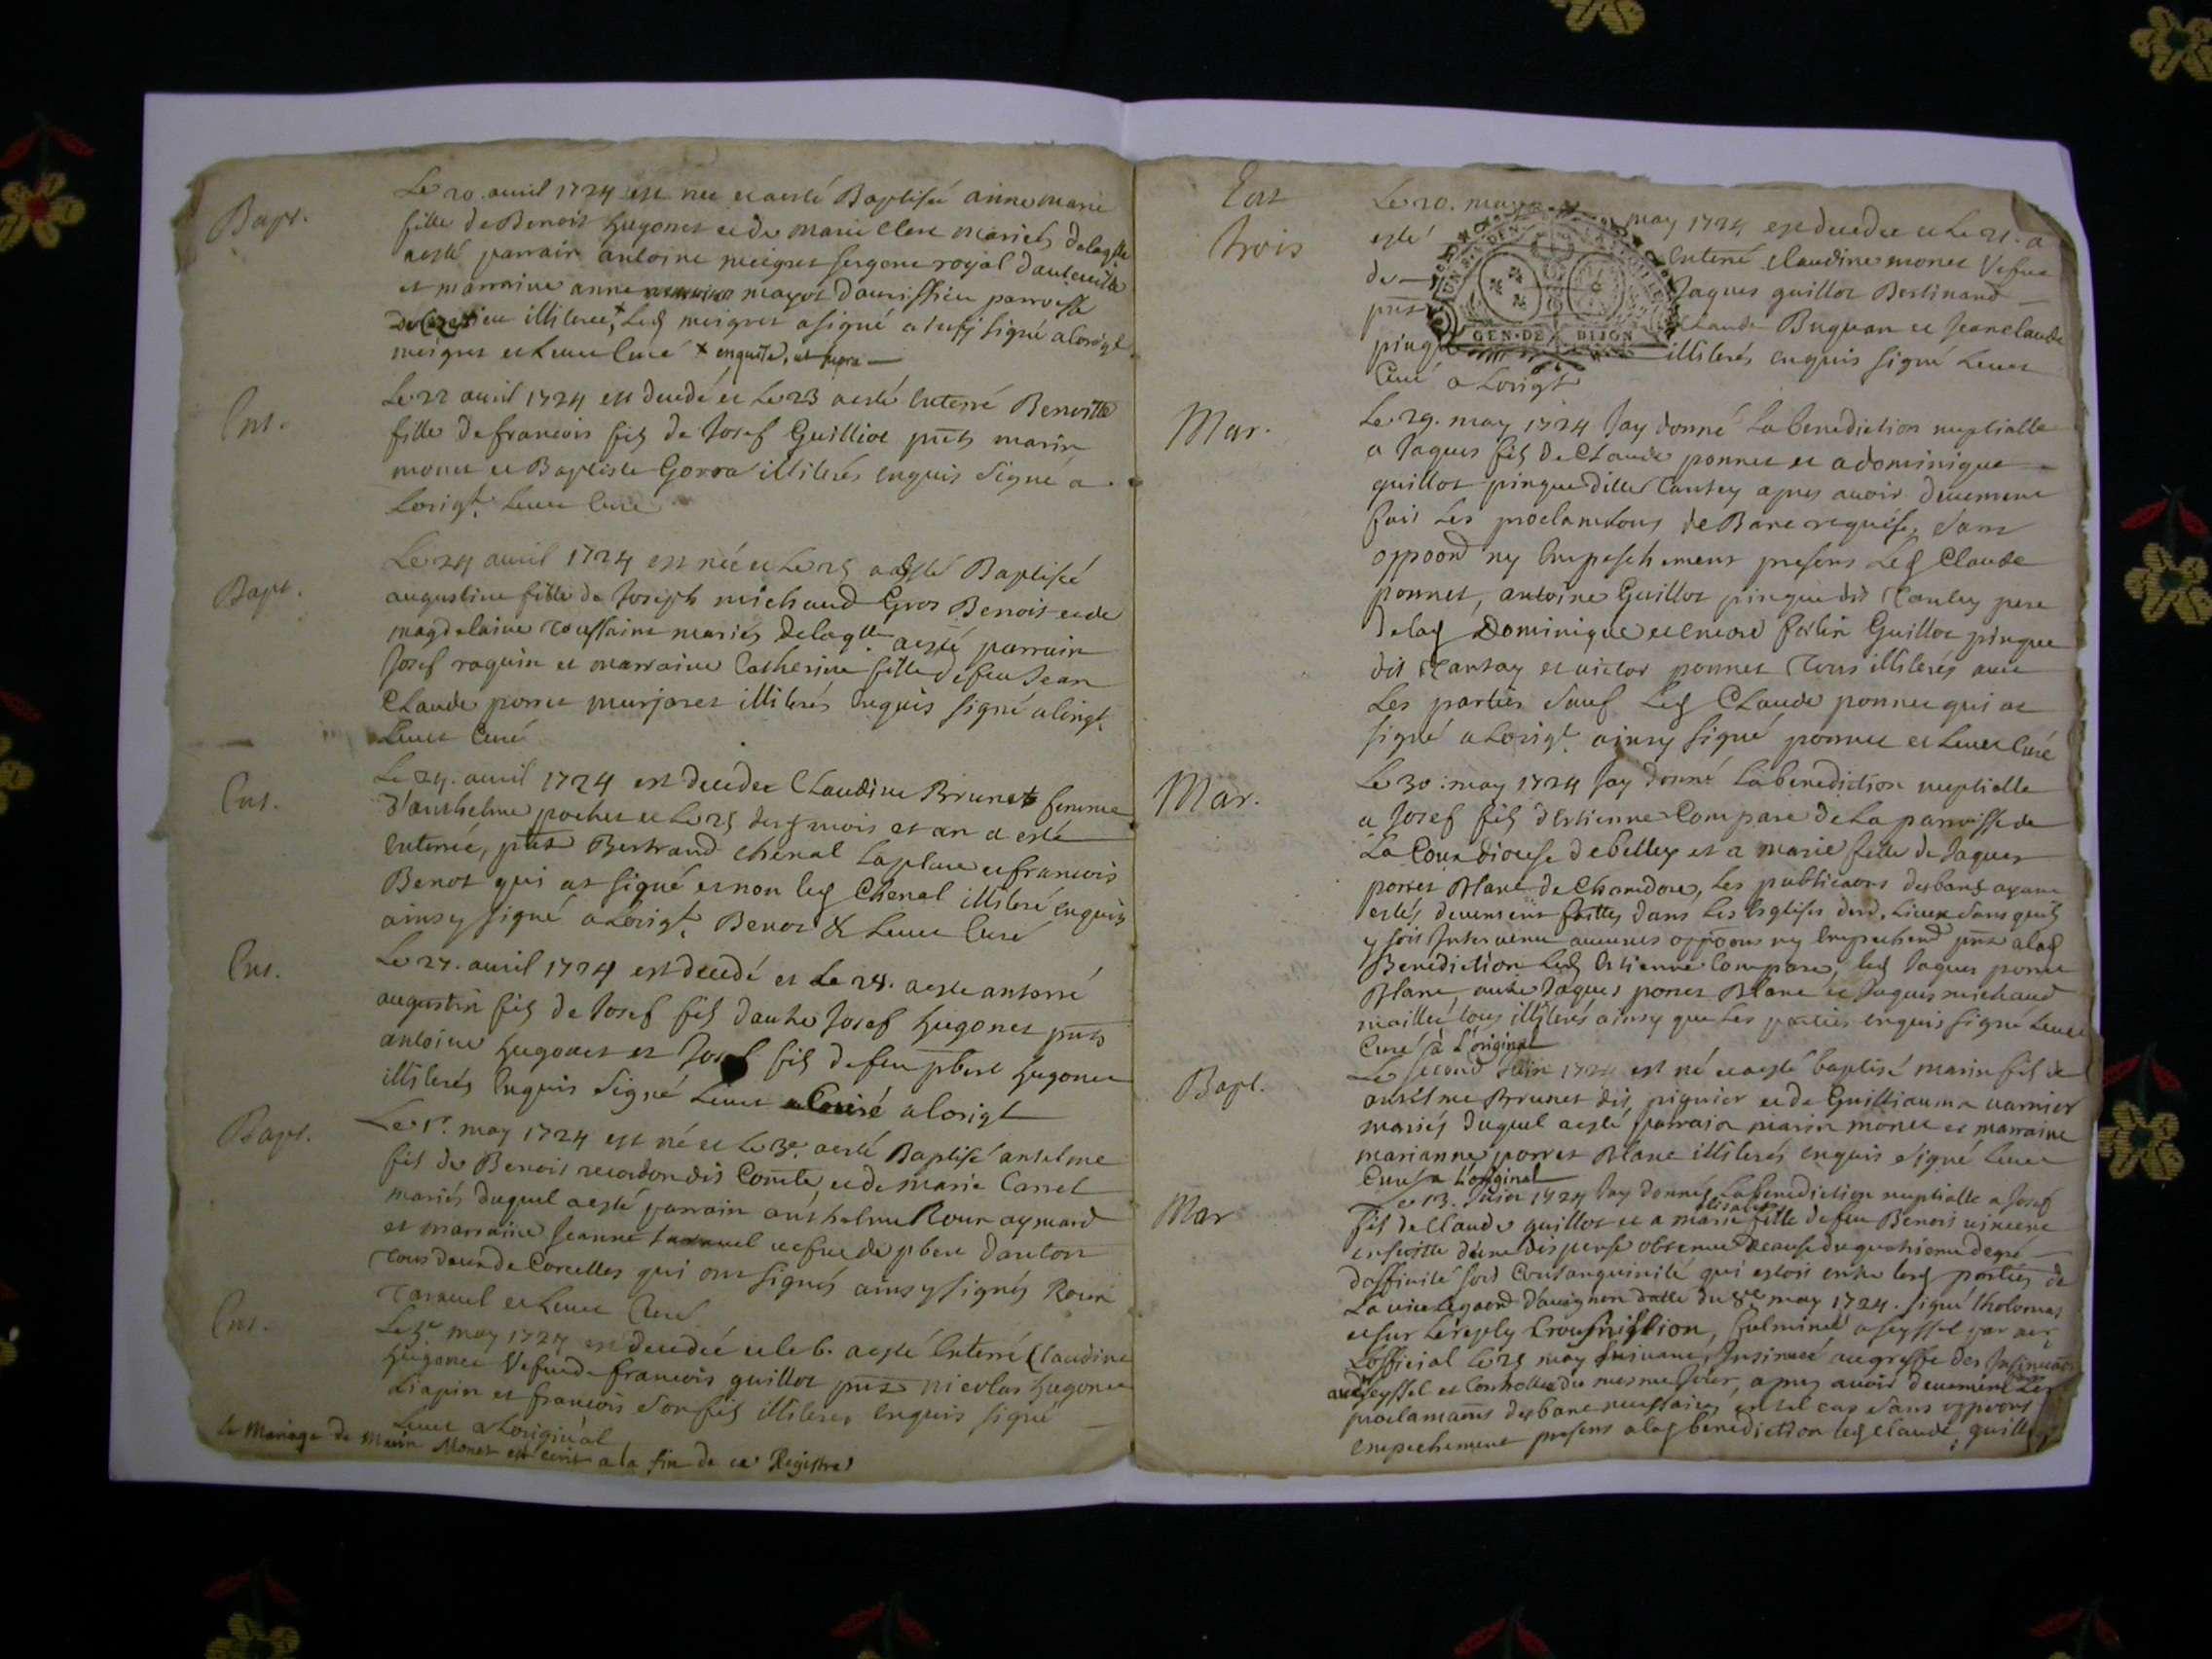 Bapt.
Le 20. avril 1724 est nee et a esté Baptisée anne marie
fille de Benoist hugonet et de marie Clerc mariés de laqlle
a esté parrain antoine meigret sergent royal
et marraine anne mayot parroisse
illiterée, + Led meigret a signé signé a lorigt
meigret et Curé + enquise,
Ent.
Le 22 avril 1724 est decedé et Le 23 a esté Enterré Benoitte
fille de francois fils de Josef Guilliot pnts marin
monet et Baptiste Gorra illiterés enquis signé a
Lorigt. Curé
Bapt.
Le 24 avril 1724 est née et Le 25 a esté Baptisée
augustine fille de Joseph michaud Gros Benoit et de
magdelaine toussaine mariés de laqlle a esté parrain
Josef raquin et marraine Catherine fille de feu Jean
Claude porret illiterés Enquis signé a lorigt.
Curé
Ent.
Le 24. avril 1724 est decedee Claudine Brunet femme
d'anthelme pochet et Le 25 desd mois et an a esté
Enterrée, pnts Bertrand chenal laplace et francois
Benot qui at signé et non led Chenal illiteré Enquis
ainsy signé a Lorigt. Benot & Curé
Ent.
Le 27. avril 1724 est decedé et Le 28. a este anterré
augustin fils de Josef fils dautre Josef hugonet pnts
antoine hugonet et Josef fils de feu pbert hugonet
illiterés Enquis signé Curé a lorigt
Bapt.
Le 1r. may 1724 est né et Le 3e. a esté Baptisé anselme
fils de Benoit reverdon dit Comte, et de marie Carrel
mariés duquel a esté parrain anthelme Roux aymard
et marraine Jeanne tavauel vefue de pbert
tous deux de Corcelles qui ont signés ainsy signés Roux
Tavauel et Curé
Ent.
Le 5e. may 1724 est decedée et le 6. a esté Enterré Claudine
hugonet Vefue de francois guillot pnts nicolas hugonet
Liapin et francois son fils illiteres Enquis signé
a Loriginal
le Mariage de Marin Monet est ecrit a la fin de ce Registre
Ent
trois
Le 20. may may 1724 est decedee et Le 21. a
esté Enterré Claudine monet Vefue
de Jaques guillot Bertinand
pnts Claude Buguan et Jean claude
pingu illiterés enquis signé
Curé a Lorigt
GEN·DE DIJON
Mar.
Le 29. may 1724 Jay donné La benediction nuptialle
a Jaques fils de Claude ponnet et a dominique
guillot pingue ditte tantey apres avoir deuement
fait Les proclamaons de Banc requises, sans
oppoon ny Empeschement presens Led Claude
ponnet, antoine Guillot pingue dit tantey pere
de lad Dominique et encore Guillot pingue
dit tantay et victor ponnet tous illiterés avec
Les parties sauf Led Claude ponnet qui at
signé a Lorigt. ainsy signé ponnet et Curé
Mar.
Le 30. may 1724 Jay donné La benediction nuptialle
a Josef fils d'Estienne Compare de La parroisse de
La Cour diocese de belley et a marie fille de Jaques
porret Blanc de Chamdore, Les publicaons des bans ayant
estés deuement faittes dans Les Esglises desd. Lieux sans quil
y soit Intervenu aucunes oppoons ny Empechemt pnts a lad
Benediction Led Estienne Compare, led Jaques porret
Blanc, autre Jaques porret Blanc et Jaques michaud
maillet tous illiterés ainsy que Les parties enquis signé
Curé a L'original
Bapt.
Le second Juin 1724 est né et a esté baptisé marin fils de
anselme Brunet dit piquier et de Guilliauma varnier
mariés duquel a esté parrain marin monet et marraine
marianne porret Blanc illiterés enquis signé
Curé a L'original
Mar
Le 13. Juin 1724 Jay donné La benediction nuptialle a Josef
fils de Claude guillot et a marie elisabet fille de feu Benoit vincent
ensuitte d'une dispense obtenue a cause du quatrieme degré
d'affinité Consanguinité qui estoit entre lesd parties de
La vice legaon d'auignon datte du 8e may 1724. signé tholomas
et sur fulminée a seyssel par mr
L'official Le 25 may suivant, Insinuée au greffe des Insinuaons
aud seyssel et Controllée du mesme Jour, apres avoir deuement
proclamaons des bans necessaires en tel cas sans oppoons
empechement presens a lad benediction led claude guillot